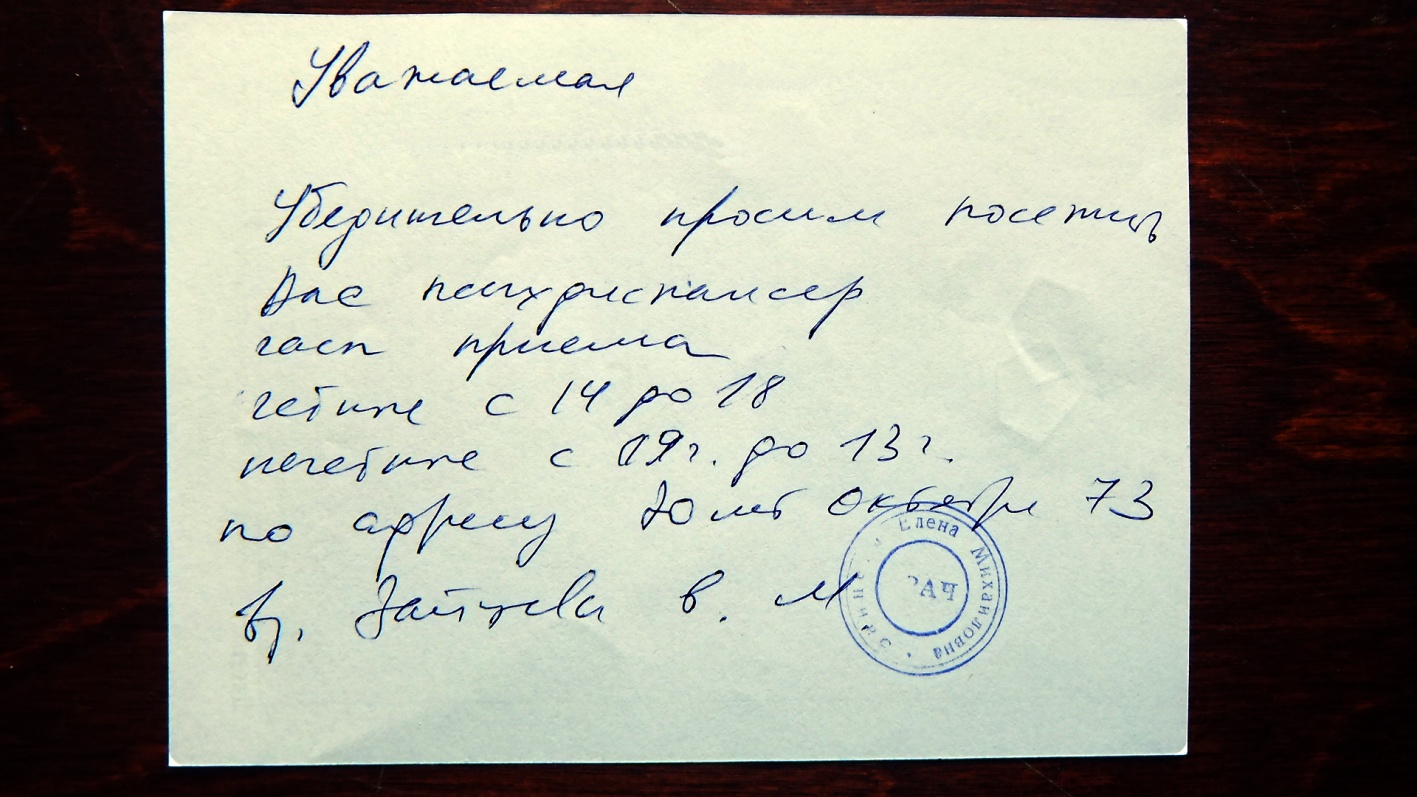 Уважаемая
Убедительно просим посетить
Вас психдиспансер
часы приема
четные с 14 до 18
нечетные с 09ч. до 13ч.
по адресу 30 лет Октября 73
вр. Зайцева В. М
Елена Михайловна